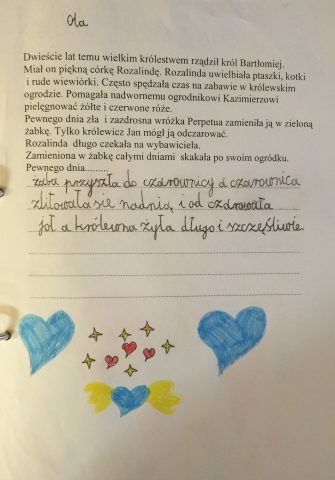 Ola
Dwieście lat temu wielkim królestwem rządził król Bartłomiej.
Miał on piękną córkę Rozalindę. Rozalinda uwielbiała ptaszki, kotki
i rude wiewiórki. Często spędzała czas na zabawie w królewskim
ogrodzie. Pomagała nadwornemu ogrodnikowi Kazimierzowi
pielęgnować żółte i czerwone róże.
Pewnego dnia zła i zazdrosna wróżka Perpetua zamieniła ją w zieloną
żabkę. Tylko królewicz Jan mógł ją odczarować.
Rozalinda długo czekała na wybawiciela.
Zamieniona w żabkę całymi dniami skakała po swoim ogródku.
Pewnego dnia.........
żaba przyszła do czarownicy a czarownica
zlitowała się nadnią i od czarowała
joł a królewna żyła długo i szczęśliwie